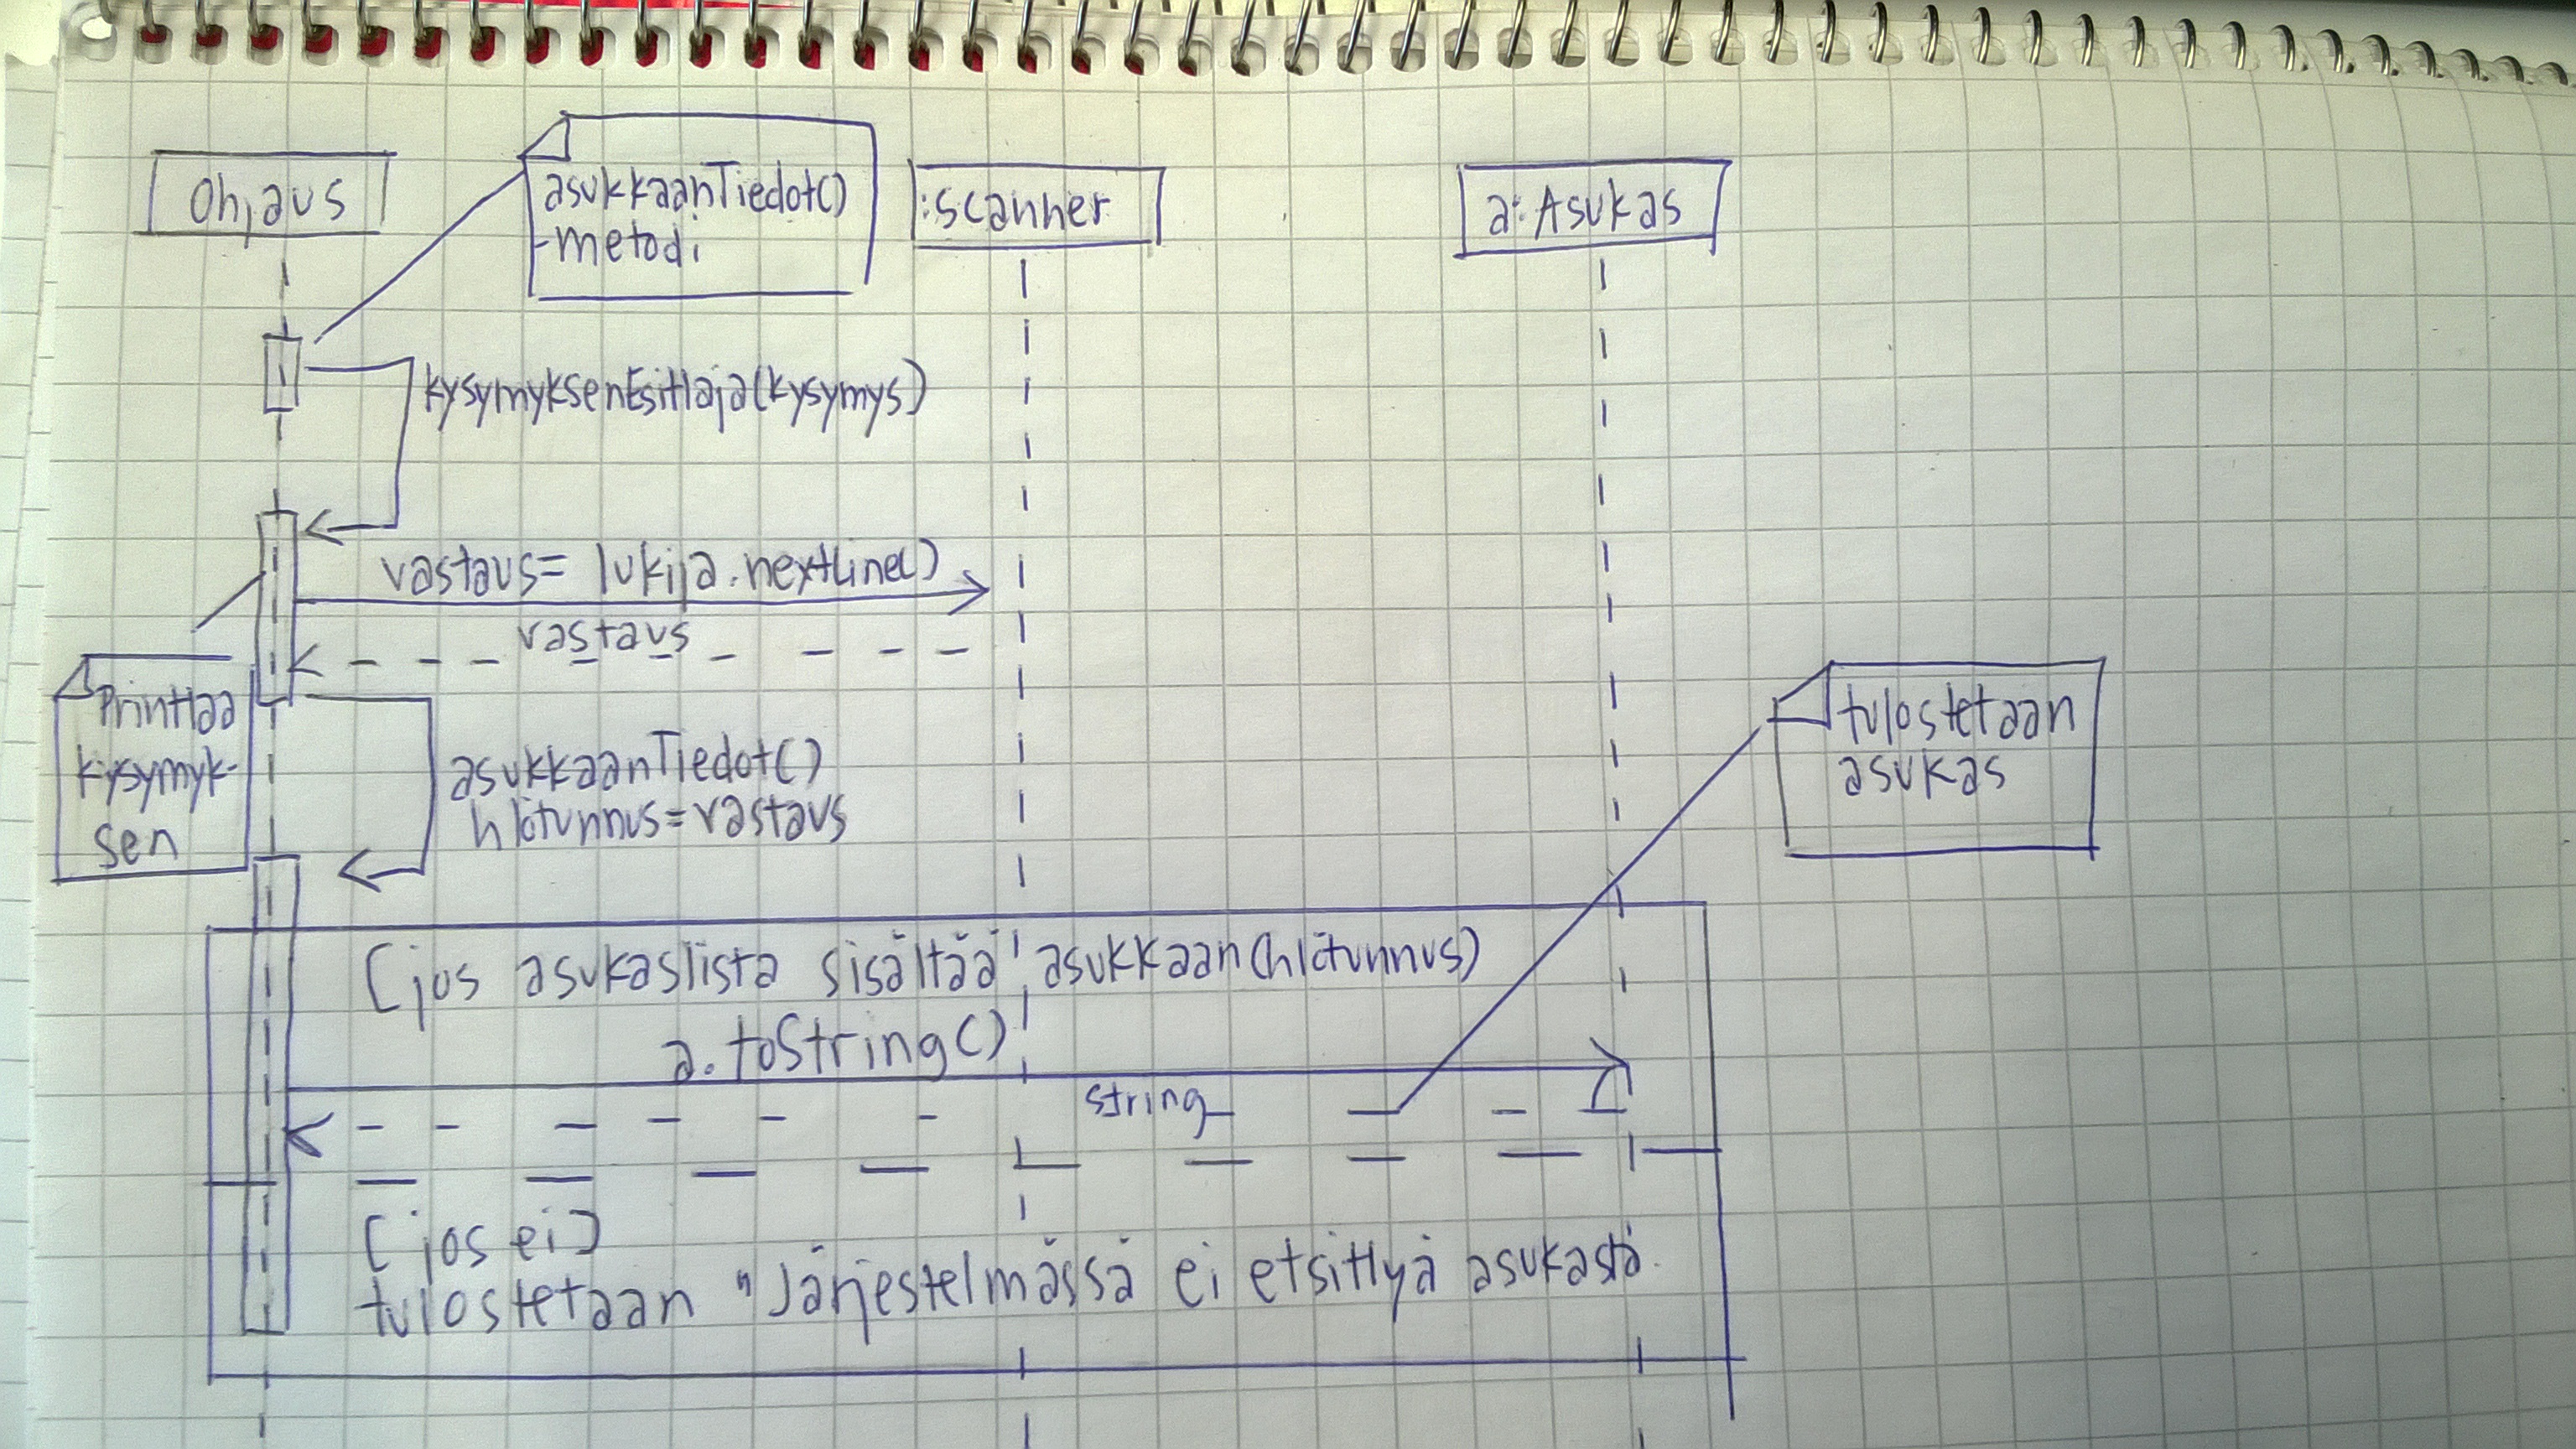 Ohjaus
asukkaanTiedot()
-metodi
:scanner
a:Asukas
kysymyksenEsittäjä(kysymys)
vastaus= lukija.nextLine()
vastaus
Printtaa
kysymyk-
sen
asukkaanTiedot()
hlötunnus=vastaus
tulostetaan
asukas
[jos asukaslista sisältää asukkaan(hlötunnus)
a.toString()
string
[jos ei]
tulostetaan "Järjestelmässä ei etsittyä asukasta.